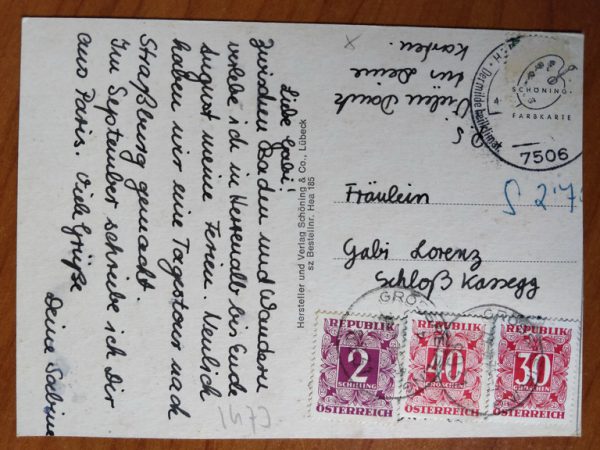 Liebe Gabi!
Zwischen Baden und Wandern
verlebe ich in Herrenalb bis Ende
August meine Ferien. Neulich
haben wir eine Tagestour nach
Straßburg gemacht.
Im September schreibe ich Dir
aus Paris. Viele Grüße
Deine Sabine
PS
Vielen Dank
für Deine
Karten.
Hersteller und Verlag Schöning & Co., Lübeck
sz Bestellnr. Hea 185
SCHÖNING
FARBKARTE
7506
Fräulein
Gabi Lorenz
Schloß Kassegg
REPUBLIK
2
SCHILLING
ÖSTERREICH
REPUBLIK
40
GROSCHEN
ÖSTERREICH
REPUBLIK
30
GROSCHEN
ÖSTERREICH